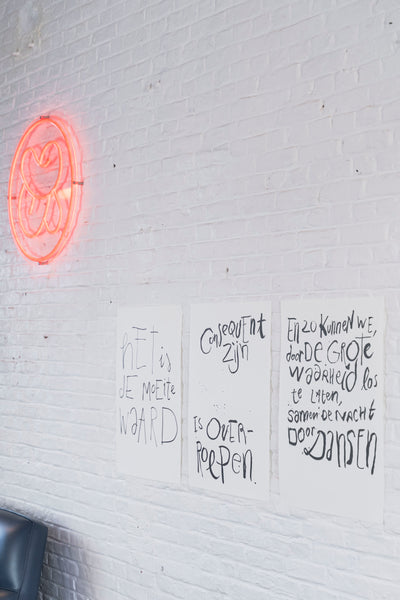 hET is
dE MOEITE
WAARD
CONSEQUENT
ZIJN
IS OVER-
ROEPEN.
EN ZO KUNNEN WE,
door DE GROTE
WAARHEID los
te LATEN,
SAMEN DE NACHT
DOOR DANSEN